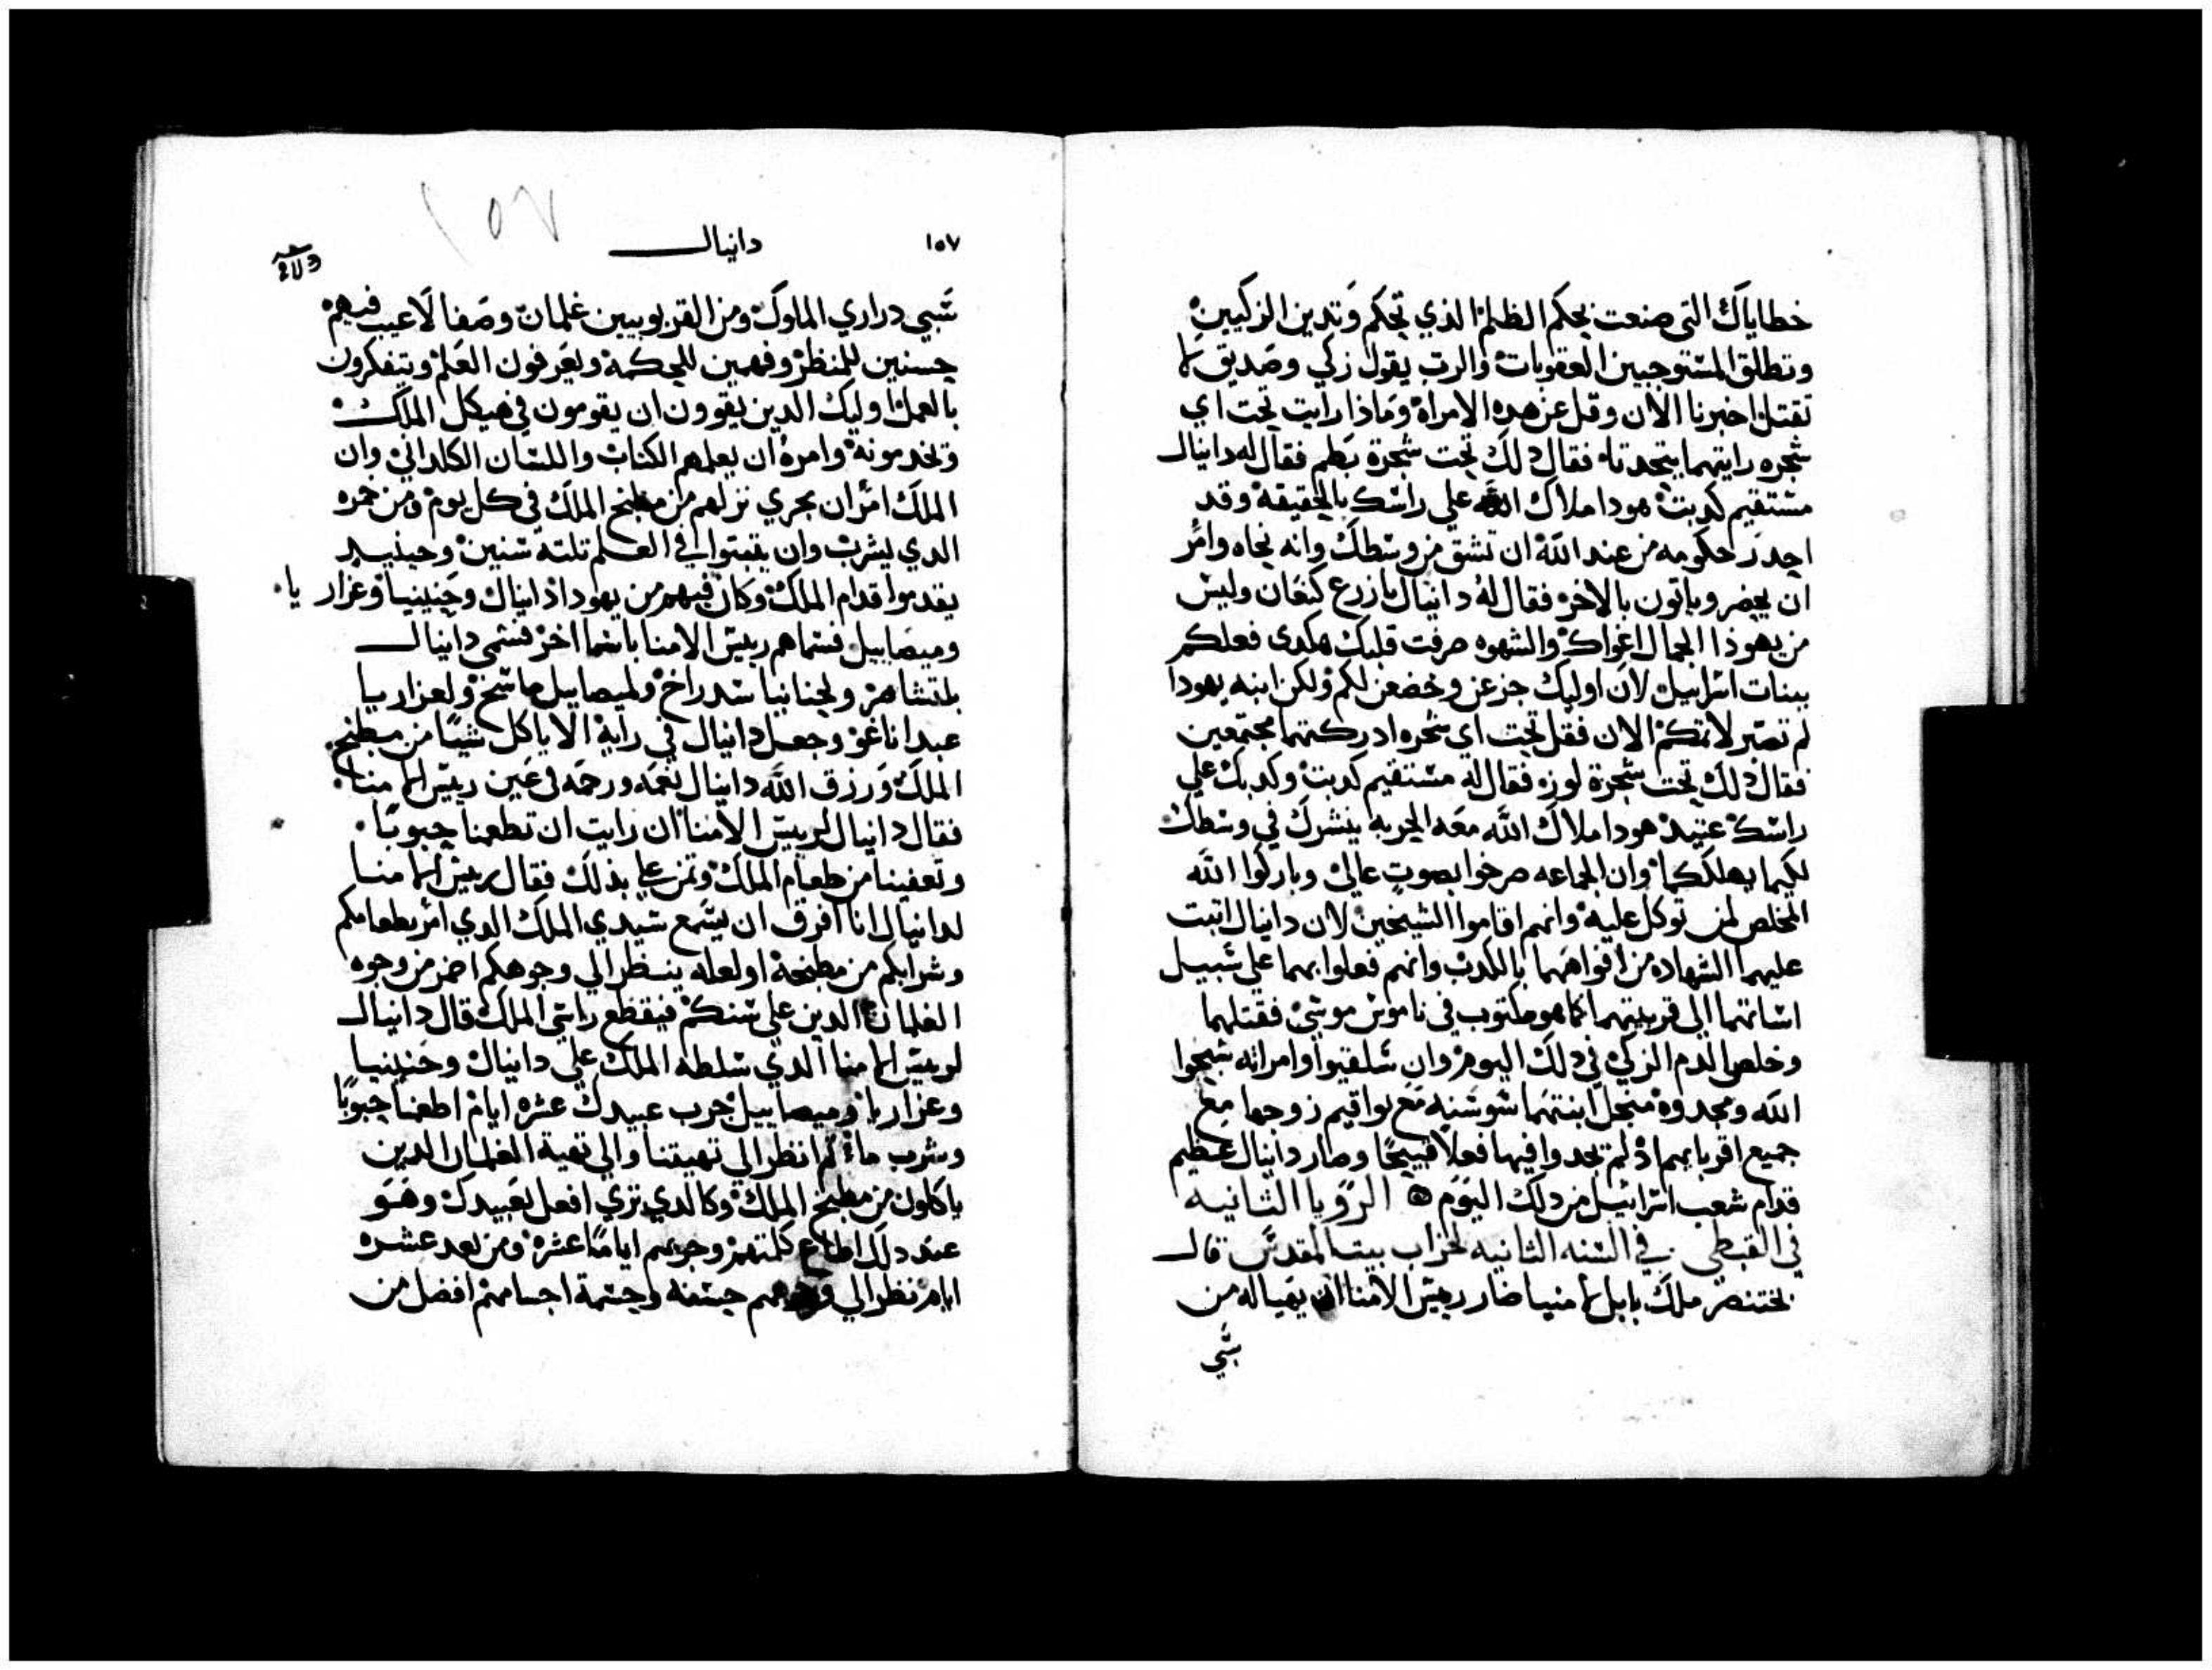 خطاياك التي صنعت بحكم الظلم الذي تحكم وتدين الزكيين
وتطلق المستوجبين العقوبات والرب يقول زكي وصديق لا
تقتل اخبرنا الان وقل عن هده الامراه وماذا رايت تحت اي
شجره رايتهما يتحدتا فقال دلك تحت شجرة بطم فقال له دانيال
مستقيم كدبت هودا ملاك الله علي راسك بالحقيقه وقد
اخد حكومه من عند الله ان تشق من وسطك وانه نحاه وامر
ان يحضروا ياتون بالاخر فقال له دانيال يا زرع كنعان وليس
من يهوذا الجمال اغواك والشهوه صرفت قلبك هكدى فعلكم
ببنات اسراييل لان اوليك جزعن وخضعن لكم ولكن ابنه يهودا
لم تصبر لاتمكم الان فقل تحت اي شجره ادركتهما مجتمعين
فقال دلك تحت شجرة لوزه فقال له مستقيم كدبت وكدبك علي
راسك عتيد هودا ملاك الله معه الحربه ينشرك في وسطك
لكيما يهلككما وان الجماعه صرخوا بصوت عالي وباركوا الله
المخلص لمن توكل عليه وانهم اقاموا الشيخين لان دانيال اتبت
عليهما الشهاده من افواههما بالكدب وانهم فعلوا بهما علي سبيل
اساتهما الي قريبتهما كما هو مكتوب في ناموس موسي فقتلهما
وخلص الدم الزكي في دلك اليوم وان شلقيوا وامراته سبحوا
الله ومجدوه من اجل ابنتهما شوشنه مع يواقيم زوجها مع
جميع اقربايهم اذ لم يجدوا فيها فعلا قبيحا وصار دانيال عظيم
قدام شعب اسراييل من دلك اليوم الرويا الثانيه
في القبطي في السنه الثانيه لخراب بيت المقدس قال
بختنصر ملك بابل لامنيا صار رييس الامنا ان يهيا له من
سبي
١٥٧ دانيال
١٥٧
سبي دراري الملوك ومن القربوبيين غلمان وصفا لا عيب فيهم
حسنين للمنظر وفهمين للحكمه ويعرفون العلم ويتفكرون
بالعمل اوليك الدين يقوون ان يقومون في هيكل الملك
وتخدمونه وامره ان يعلمهم الكتاب واللسان الكلداني وان
الملك امر ان يجري نزلهم من مطبخ الملك في كل يوم ومن خمره
الدي يشرب وان يقيموا في العلم تلته سنين وحينيد
يقدموا قدام الملك وكان فيهم من يهودا دانيال وحنينيا وعزاريا
وميصاييل فسماهم رييس الامنا باسما اخر فسمي دانيال
بلتشاصر ولحنانيا سدراخ ولميصاييل ماشخ ولعزاريا
عبداناغو وجعل دانيال في رايه الا ياكل شيا من مطبخ
الملك ورزق الله دانيال نعمه ورحمه في عين رييس الامنا
فقال دانيال لرييس الامنا ان رايت ان تطعمنا حبوبا
وتعفينا من طعام الملك وتمن علي بذلك فقال رييس الامنا
لدانيال انا افرق ان يسمع سيدي الملك الدي امر بطعامكم
وشرابكم من مطبخه او لعله ينظر الي وجوهكم اضر من وجوه
الغلمان الدين علي سنكم فيقطع راسي الملك قال دانيال
لرييس الامنا الدي سلطه الملك علي دانيال وحننيا
وعزاريا وميصاييل جرب عبيدك عشره ايام اطعمنا حبوبا
وشرب ما تم انظر الي تهيتنا والي تهية الغلمان الدين
ياكلون من مطبخ الملك وكالدي تري افعل بعبيدك وهو
عند دلك اطاع كلمتهم وجربهم اياما عشره ومن بعد عشره
ايام نظر الي وجوههم حسنه وجسمة اجسامهم افضل من